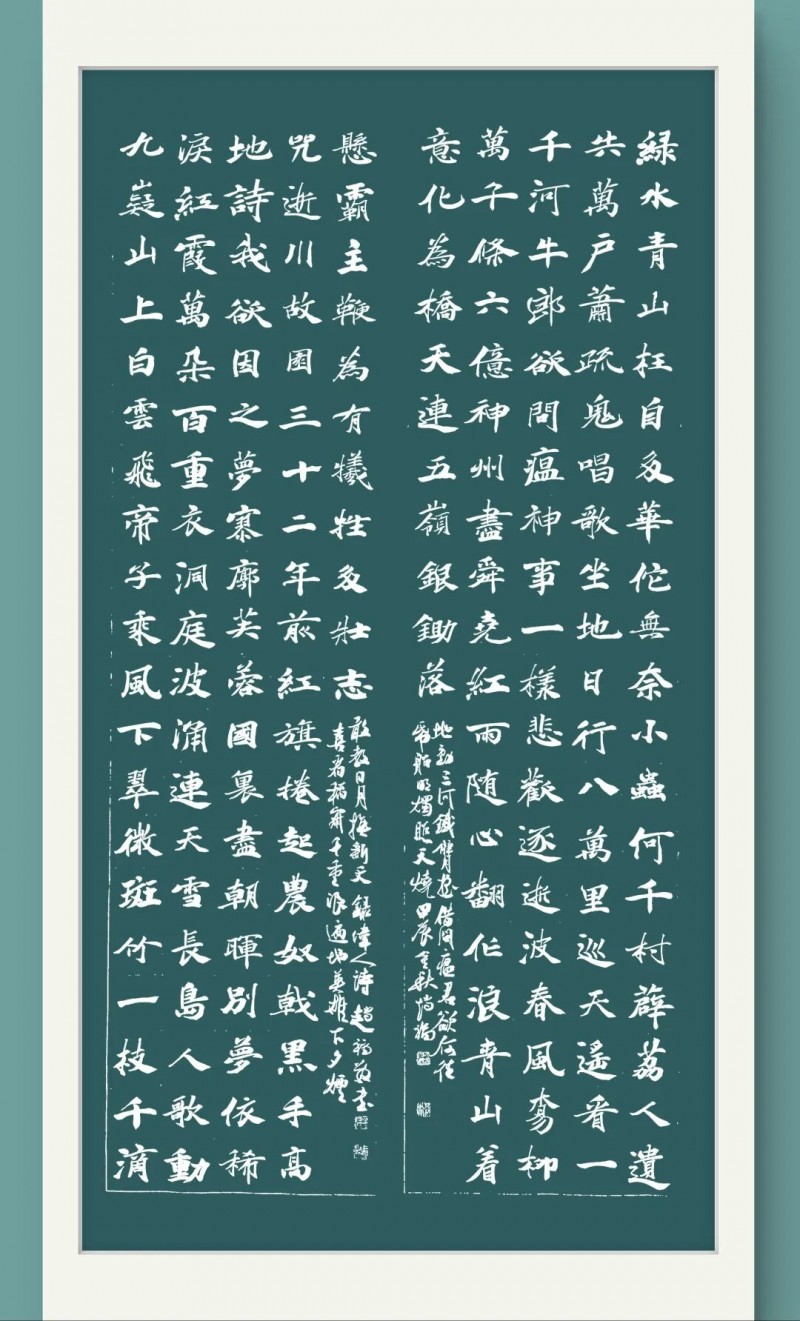 綠水青山枉自多華佗無奈小蟲何千村薜荔人遺
矢萬戶蕭疏鬼唱歌坐地日行八萬里巡天遙看一
千河牛郎欲問瘟神事一樣悲歡逐逝波春風楊柳
萬千條六億神州盡舜堯紅雨随心翻作浪青山着
意化為橋天連五嶺銀鋤落
地動三河鐵臂搖借問瘟君欲何往
紙船明燭照天燒 甲辰金秋
九嶷山上白雲飛帝子乘風下翠微斑竹一枝千滴
淚紅霞萬朵百重衣洞庭波涌連天雪長島人歌動
地詩我欲因之夢寥廓芙蓉國裏盡朝暉別夢依稀
咒逝川故園三十二年前紅旗捲起農奴戟黑手高
懸霸主鞭為有犧牲多壯志
敢教日月換新天 錄偉人詩 趙福書
喜看稻菽千重浪遍地英雄下夕煙